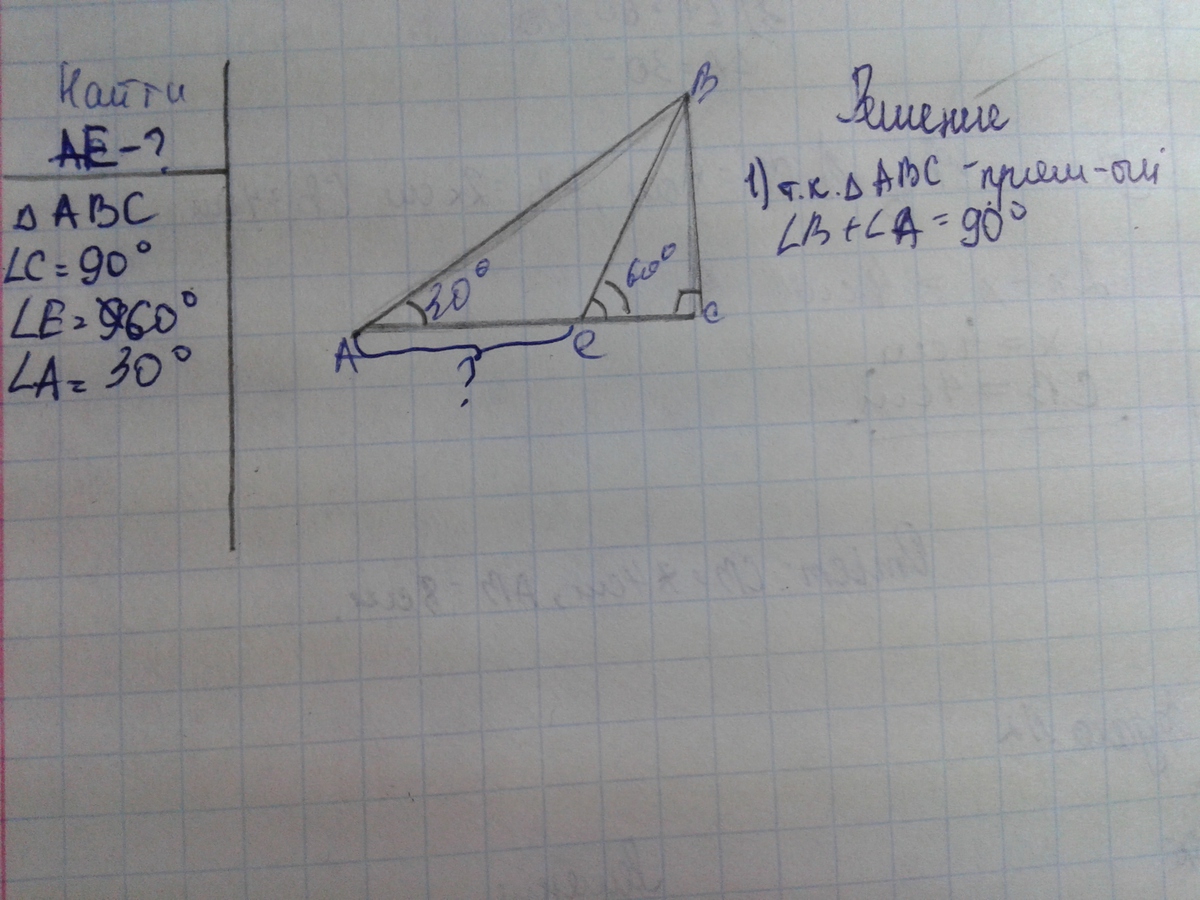 Найти
AE-?
Δ ABC
∠C = 90°
∠E = 60°
∠A = 30°
B
30°
60°
A
e
c
?
Решение
1) т.к. Δ ABC - прям-ый
∠B + ∠A = 90°